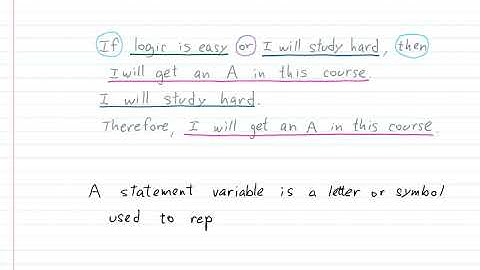 If logic is easy or I will study hard, then
I will get an A in this course.
I will study hard.
Therefore, I will get an A in this course.
A statement variable is a letter or symbol
used to rep